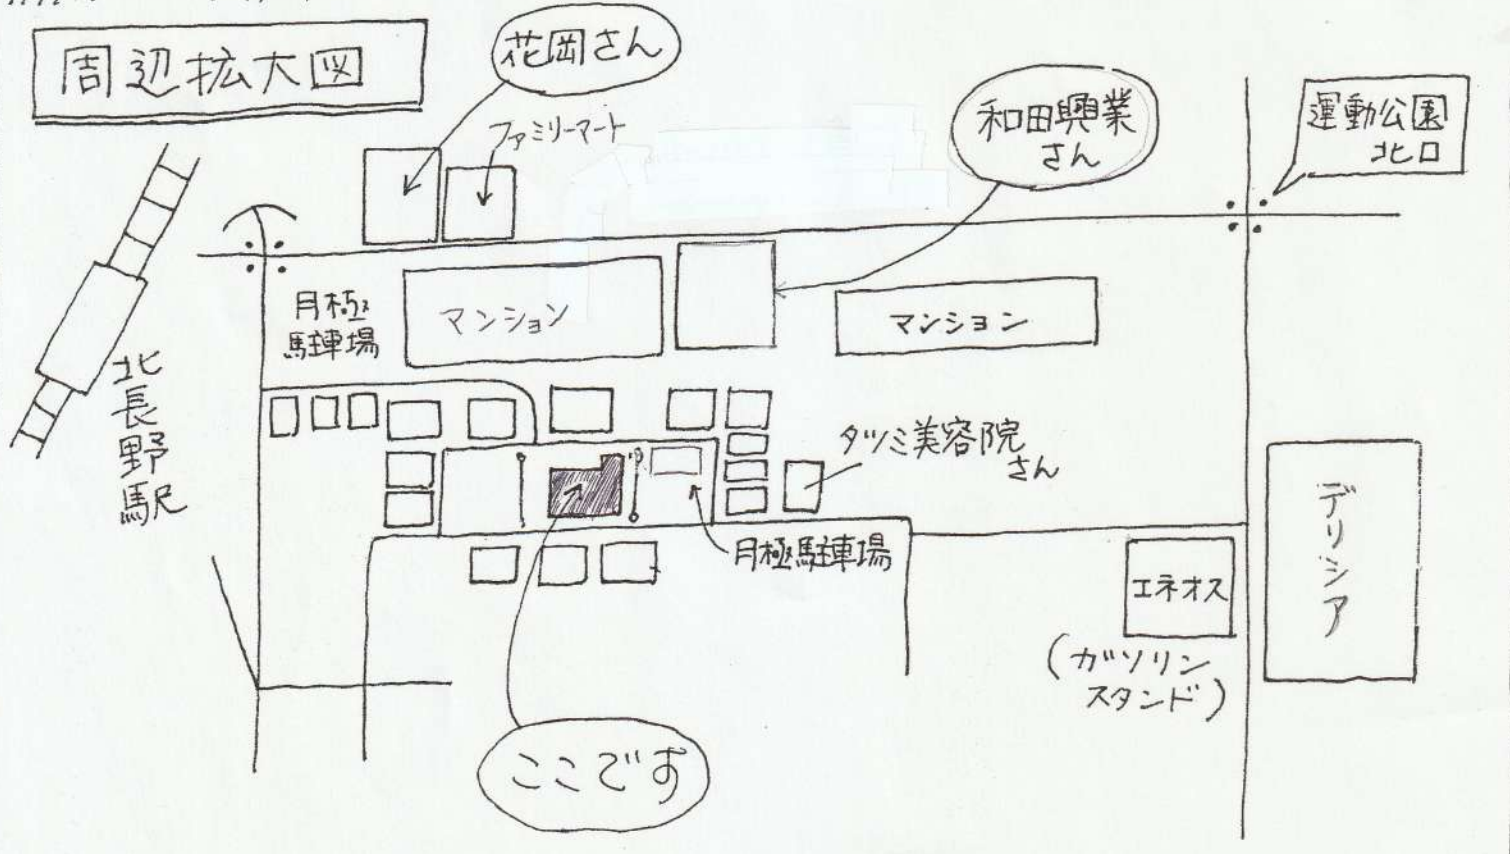 周辺拡大図
花岡さん
ファミリーマート
和田興業
さん
運動公園
北口
月極
駐車場
マンション
マンション
北長野駅
タツミ美容院
さん
月極駐車場
デリシア
エネオス
(ガソリン
スタンド)
ここです